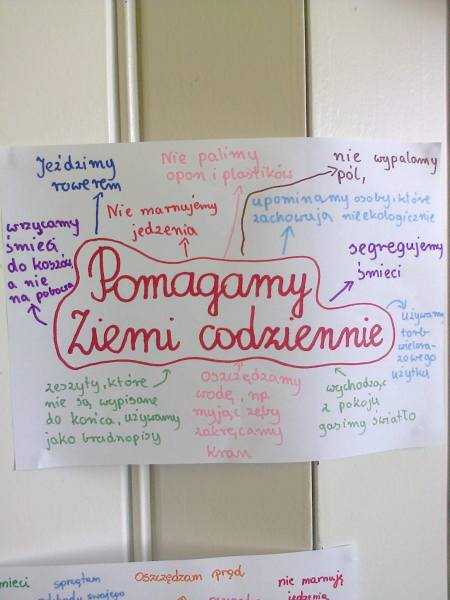 Jeździmy
rowerem
Nie palimy
opon i plastików
nie wypalamy
pól,
Nie marnujemy
jedzenia
upominamy osoby, które
zachowują nieekologicznie
wrzucamy
śmieci
do koszów
a nie
na pobocza
segregujemy
śmieci
Pomagamy
Ziemi codziennie
Używamy
torb
wielora-
zowego
użytku
zeszyty, które
nie są wypisane
do końca, używamy
jako brudnopisy
Oszczędzamy
wodę, np.
myjąc zęby
zakręcamy
kran
wychodząc
z pokoju
gasimy światło
śmieci
sprzątam
swojego
Oszczędzam prąd
nie marnuję
jedzenia